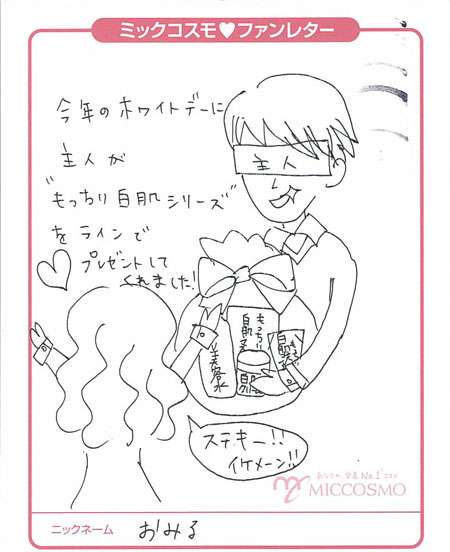 ミックコスモ♥ファンレター
今年のホワイトデーに
主人が
"もっちり白肌シリーズ"
をラインで
プレゼントして
くれました!
主人
もっちり
白肌
美容水
白肌
ステキー!!
イケメーン!!
MICCOSMO
ニックネーム おみる